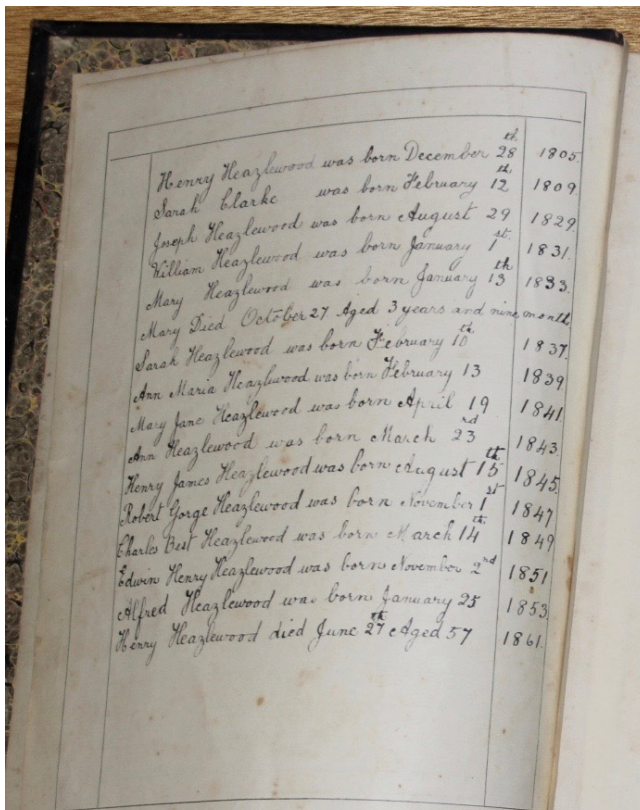 Henry Heazlewood was born December 28th 1805.
Sarah Clarke was born February 12th 1809
Joseph Heazlewood was born August 29 1829.
William Heazlewood was born January 1st. 1831.
Mary Heazlewood was born January 13th 1833.
Mary Died October 27 Aged 3 years and nine month
Sarah Heazlewood was born February 10th 1837.
Ann Maria Heazlewood was born February 13 1839
Mary Jane Heazlewood was born April 19 1841.
Ann Heazlewood was born March 23rd 1843.
Henry James Heazlewood was born August 15th 1845.
Robert Gorge Heazlewood was born November 1st 1847
Charles Best Heazlewood was born March 14th 1849
Edwin Henry Heazlewood was born November 2nd 1851
Alfred Heazlewood was born January 25 1853.
Henry Heazlewood died June 27th Aged 57 1861.